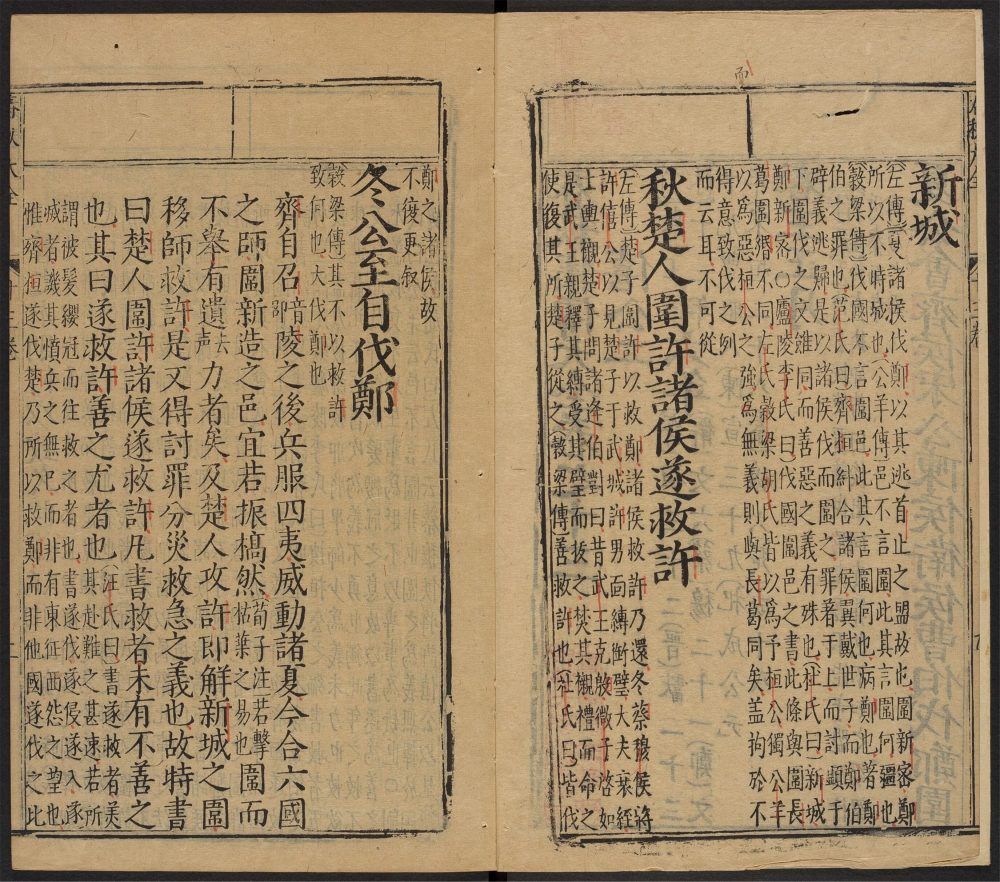 新城
左傳夏諸侯伐鄭以其逃首止之盟故也圍新密鄭
所以不時城也公羊傳邑不言圍此其言圍何彊也
穀梁傳伐國不言圍邑此其言圍何也病鄭也著鄭
伯之罪也范氏曰齊桓糾合諸侯翼戴世子而鄭伯
辟義逃歸是以諸侯伐而圍之罪著于上而討顯于
下圍伐之文雖同而善惡之義有殊也杜氏曰新城
鄭新密○廬陵李氏曰伐國圍邑之書此條與圍長
葛圍緡不同左氏穀梁胡氏皆以爲予桓公獨公羊
以爲惡桓公之強爲無義則與長葛同矣盖拘於不
得意致伐之例
而云耳不可從
秋楚人圍許諸侯遂救許
左傳楚子圍許以救鄭諸侯救許乃還冬蔡穆侯將
許僖公以見楚子于武城許男面縛銜璧大夫衰絰
士輿櫬楚子問諸逢伯對曰昔武王克殷微子啓如
是武王親釋其縛受其璧而祓之焚其櫬禮而命之
使復其所楚子從之穀梁傳善救許也杜氏曰皆伐
鄭之諸侯故
不復更叙
冬公至自伐鄭
穀梁傳其不以救許
致何也大伐鄭也
齊自召陵之後兵服四夷威動諸夏今合六國
之師圍新造之邑宜若振槁然荀子注若擊枯葉之易也圍而
不舉有遺去聲力者矣及楚人攻許即解新城之圍
移師救許是又得討罪分災救急之義也故特書
曰楚人圍許諸侯遂救許凡書救者未有不善之
也其曰遂救許善之尤者也汪氏曰書遂救者美其赴難之甚速若所
謂被髮纓冠而往救之者也書遂伐遂侵遂入遂
城者譏其憤兵之無已而非有東征西怨之望也
惟齊桓遂伐楚乃所以救鄭而非他國遂伐之比